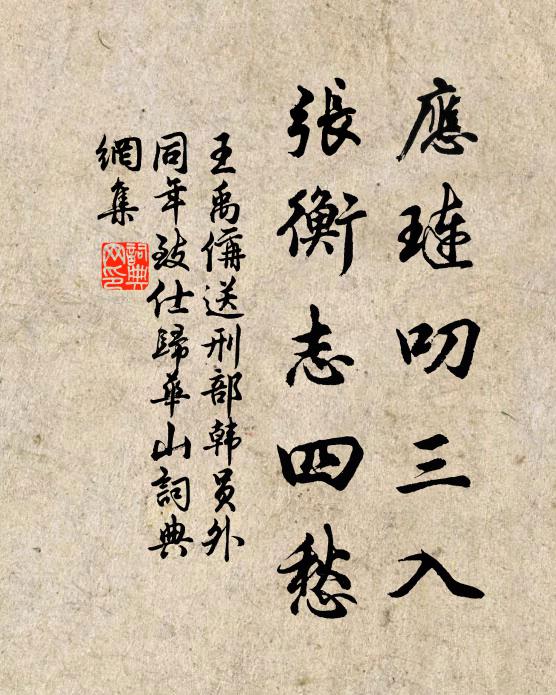 應璉叨三入
張衡志四愁
王禹偁送刑部韩員外
同年致仕歸華山詞典
網集
詞典網印